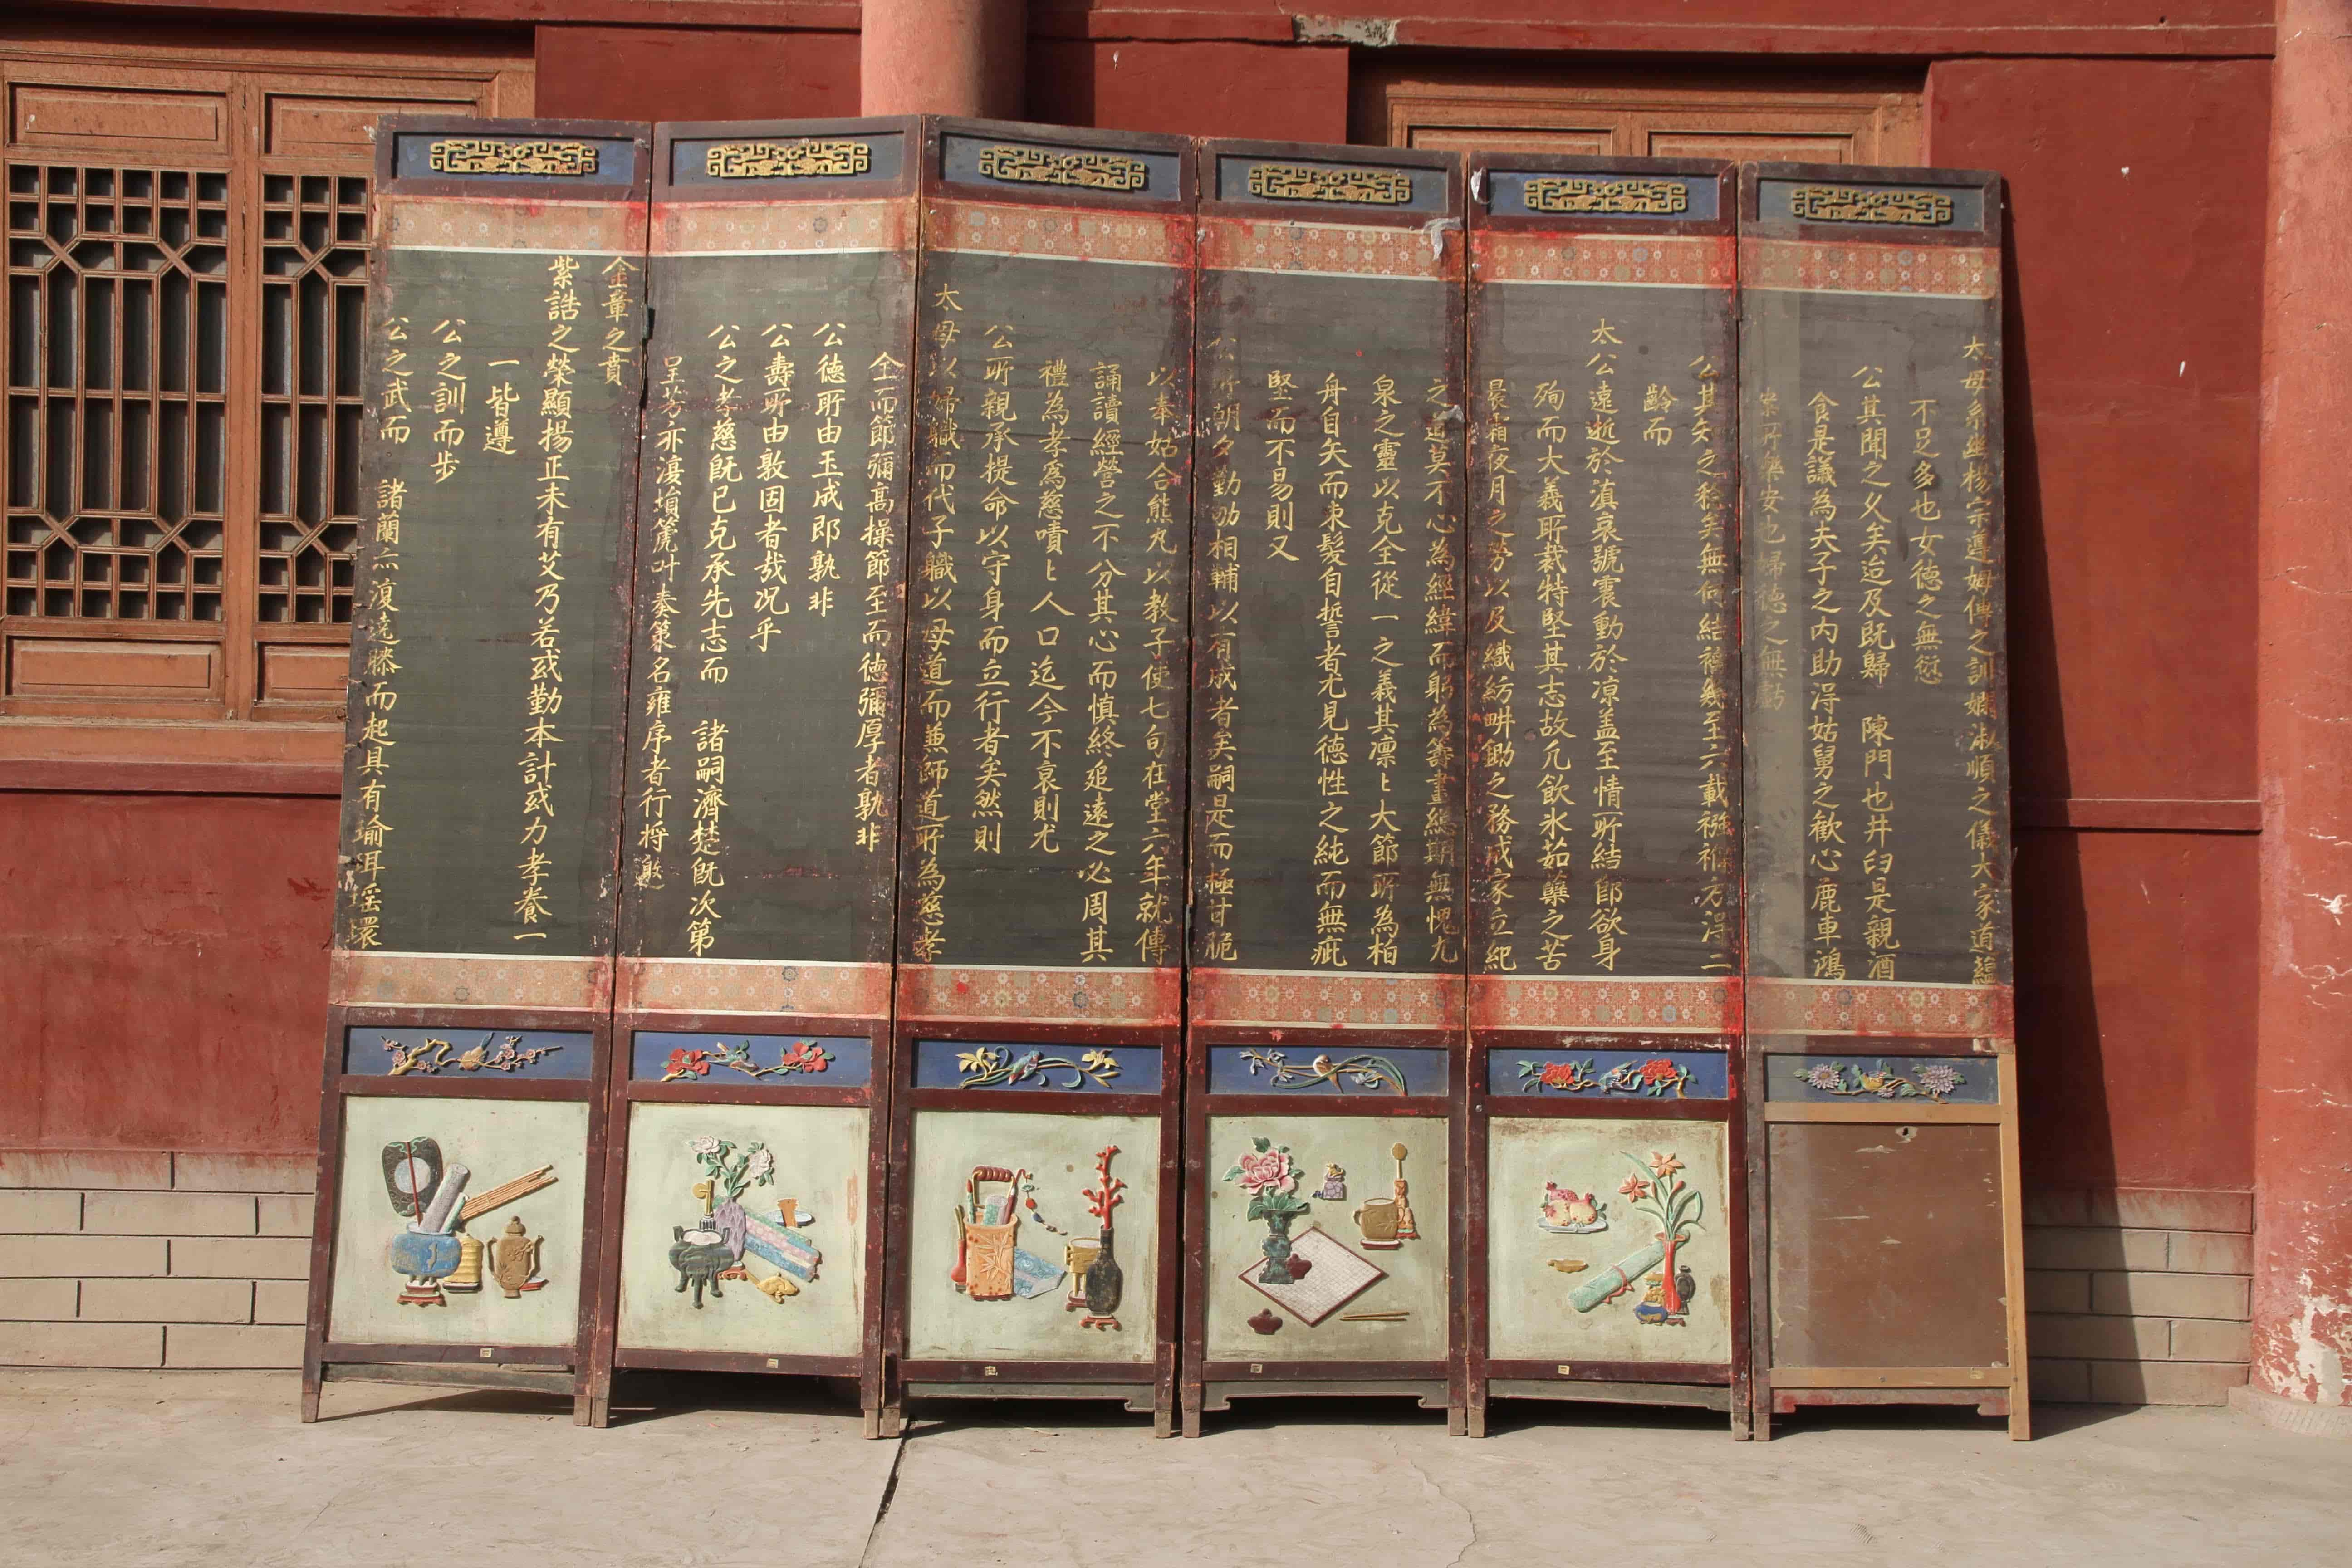 太母系出楊宗遵姆傳之訓嫻淑順之儀大家道蘊
不足多也女德之無愆
公其聞之久矣迨及既歸 陳門也井臼是親酒
食是議為夫子之內助淂姑舅之歡心鹿車鴻
案所樂安也婦德之無虧
公其知之稔矣無何結褵幾至六載襁褓方淂二
齡而
太公遠逝於滇哀號震動於凉盖至情所結即欲身
殉而大義所裁特堅其志故凢飲氷茹蘗之苦
晨霜夜月之勞以及織紡畊鋤之務成家立紀
之道莫不心為經緯而躬為籌畫總期無愧九
泉之靈以克全從一之義其凛〻大節所為柏
舟自矢而束髪自誓者尤見德性之純而無疵
堅而不易則又
公所朝夕勤劬相輔以有成者矣嗣是而極甘脆
以奉姑合熊丸以教子使七旬在堂六年就傳
誦讀經營之不分其心而慎終追遠之必周其
禮為孝為慈嘖〻人口迄今不衰則尤
公所親承提命以守身而立行者矣然則
太母以婦職而代子職以母道而兼師道所為慈孝
全而節彌高操節至而德彌厚者孰非
公德所由玉成即孰非
公壽所由敦固者哉况乎
公之孝慈旣已克承先志而 諸嗣濟楚旣次第
呈芳亦復塤篪叶奏第名雍序者行将慰
金章之賁
紫誥之榮顯揚正未有艾乃若或勤本計或力孝養一
一皆遵
公之訓而步
公之武而 諸蘭亦復遶膝而起具有瑜珥瑶環